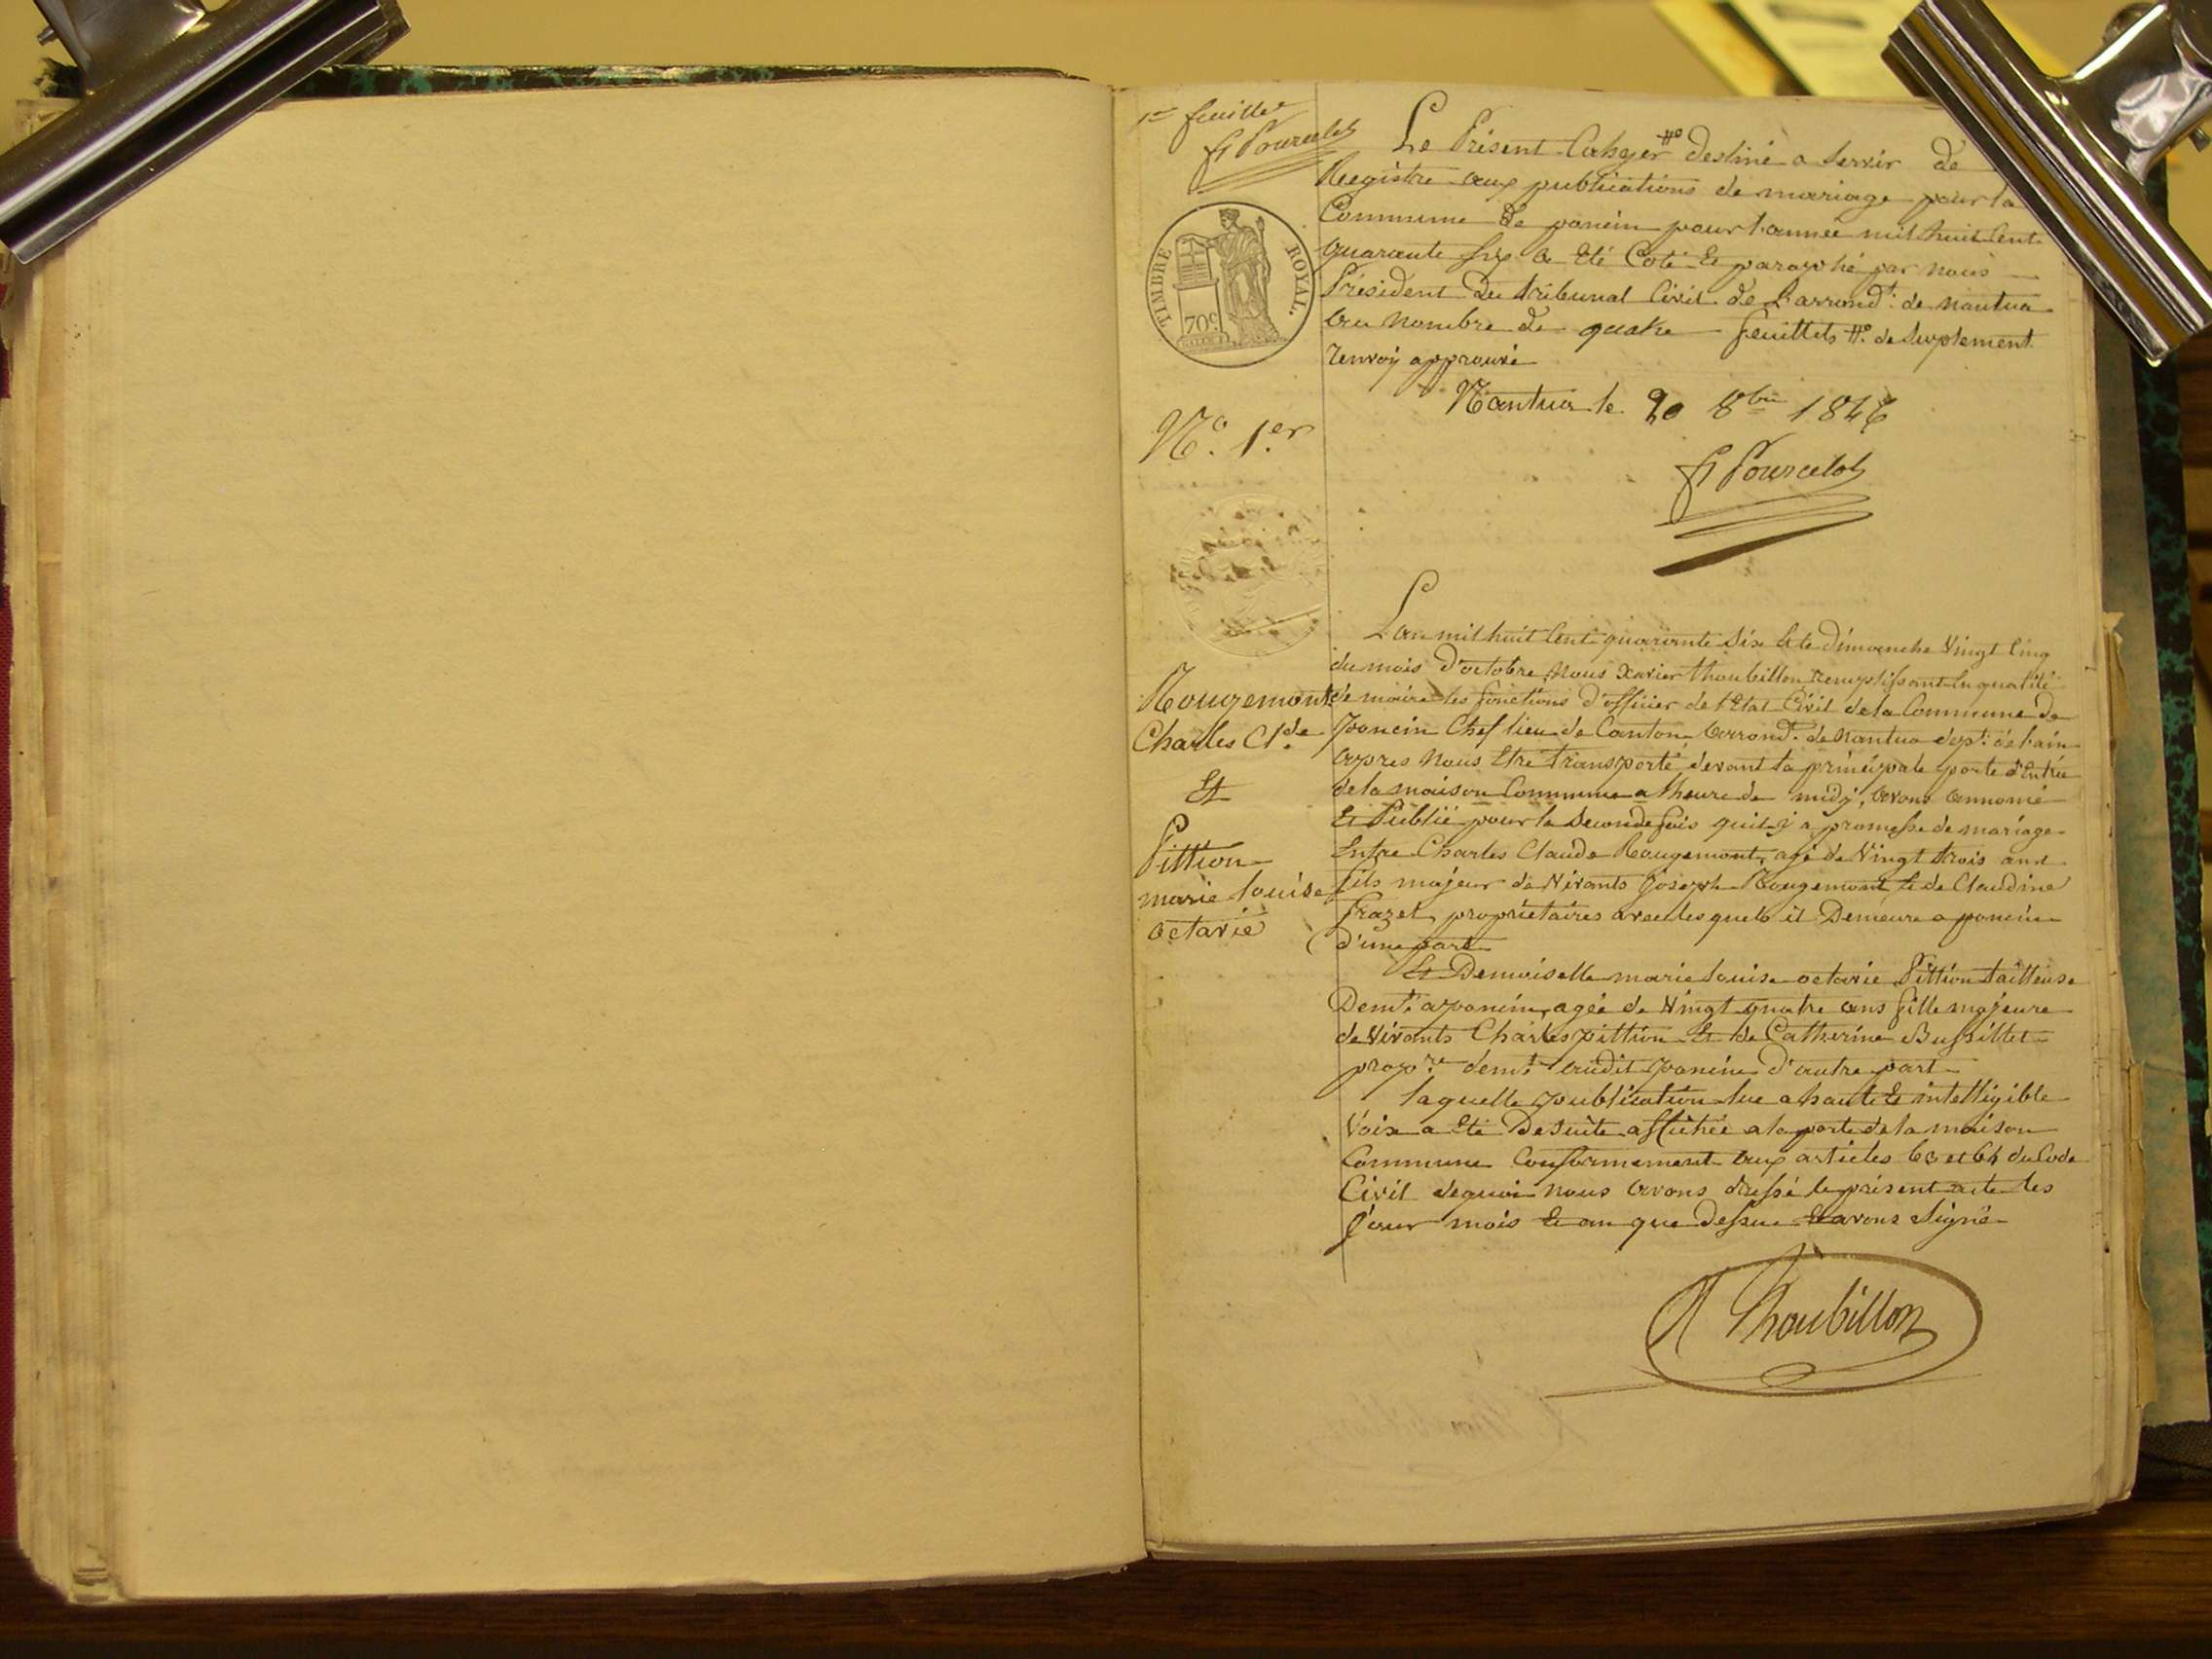 1er feuillet
Pourcelot
TIMBRE ROYAL.
70c
Le Présent Cahyer # destiné a servir de
Registre aux publications de mariage pour la
Commune de poncin pour l'année mil huit Cent
quarante six a Eté Coté Et paraphé par nous
Président Du tribunal Civil de L'arrondt. de nantua
au nombre de quatre feuillets # de suplement
renvoy approuvé
Nantua le 20 8bre 1846
Pourcelot
No. 1.er
L'an mil huit Cent quarante Six Et le dimanche Vingt Cinq
du mois D'octobre Nous Xavier thoubillon remplissant En qualité
de maire les fonctions d'officier de l'Etat Civil de la Commune De
poncin Chef lieu de Canton arrondt. de Nantua dept. de l'ain
apres Nous Etre transporté devant la principale porte d'Entrée
de la maison Commune a l'heure de midy, avons annoncé
Et Publié pour la Seconde fois quil y a promesse de mariage
Entre Charles Claude Rougemont, agé de Vingt trois ans
fils majeur de Vivants Joseph Rougemont Et de Claudine
frazet, propriétaires avec les quels il Demeure a poncin
d'une part
Et Demoiselle marie Louise octavie Pittion tailleuse
Demt. a poncin, agée de Vingt quatre ans fille majeure
de Vivants Charles pittion Et de Catherine Bussillet
propre. demt. audit poncin d'autre part
laquelle publication lue a haute Et intelligible
Voix a Eté De suite affichée a la porte de la maison
Commune Conformement aux articles 63 et 64 du Code
Civil dequoi nous avons dressé le présent acte les
Jour mois Et an que dessus Et avons Signé
Thoubillon
Rougemont
Charles Cl.de
Et
Pittion
marie louise
octavie